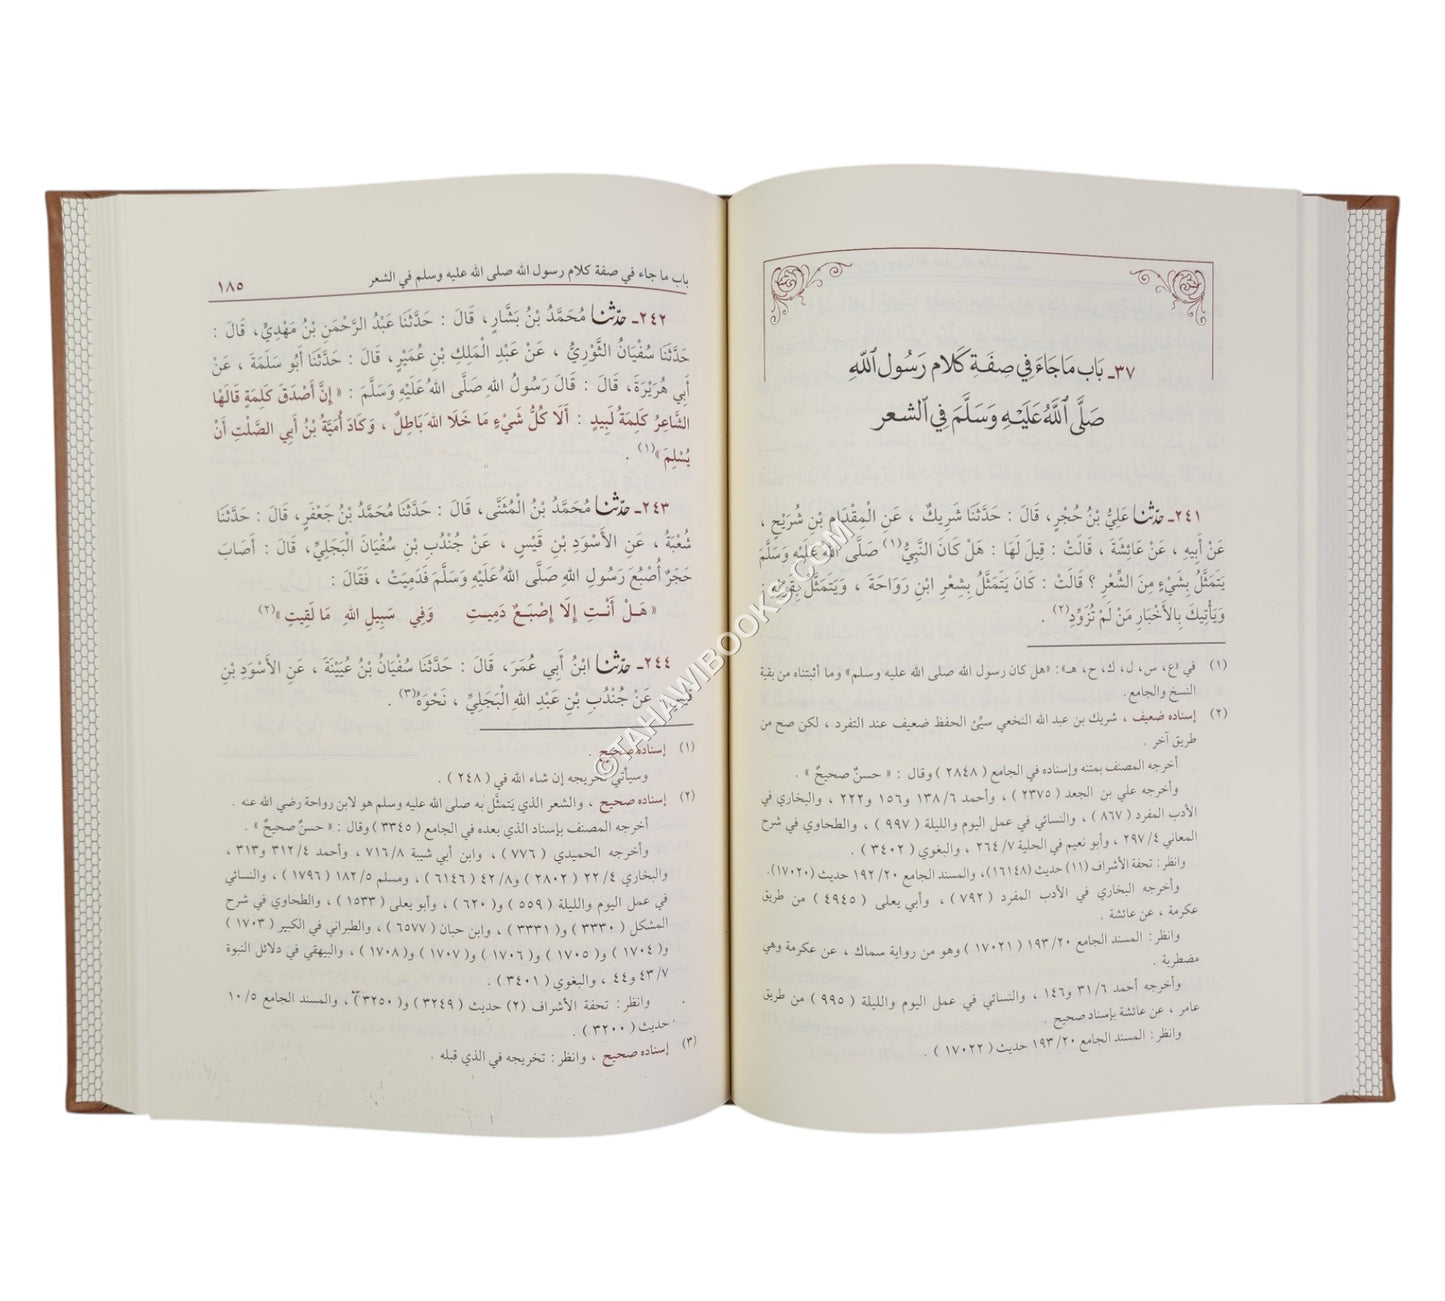 ٣٧ـ بَاب مَا جَاءَ فِي صِفَةِ كَلَام رَسُول ٱللَّهِ
صَلَّى ٱللَّهُ عَلَيْهِ وَسَلَّمَ فِي ٱلشعر
٢٤١ـ حدّثنا عَلِيُّ بْنُ حُجْرٍ، قَالَ : حَدَّثَنَا شَرِيكٌ ، عَنِ الْمِقْدَامِ بْنِ شُرَيْحٍ ،
عَنْ أَبِيهِ ، عَنْ عَائِشَةَ ، قَالَتْ : قِيلَ لَهَا : هَلْ كَانَ النَّبِيُّ(١) صَلَّى اللهُ عَلَيْهِ وَسَلَّمَ
يَتَمَثَّلُ بِشَيْءٍ مِنَ الشِّعْرِ ؟ قَالَتْ : كَانَ يَتَمَثَّلُ بِشِعْرِ ابْنِ رَوَاحَةَ ، وَيَتَمَثَّلُ بِقَوْلِهِ :
وَيَأْتِيكَ بِالأَخْبَارِ مَنْ لَمْ تُزَوِّدِ(٢) .
(١) في «ع، س، ل، ك، ح، هـ»: «هل كان رسول الله صلى الله عليه وسلم» وما أثبتناه من بقية
النسخ والجامع.
(٢) إسناده ضعيف ، شريك بن عبد الله النخعي سيّئ الحفظ ضعيف عند التفرد ، لكن صح من
طريق آخر .
أخرجه المصنف بمتنه وإسناده في الجامع ( ٢٨٤٨ ) وقال : « حسنٌ صحيحٌ » .
وأخرجه علي بن الجعد ( ٢٣٧٥ ) ، وأحمد ١٣٨/٦ و١٥٦ و٢٢٢ ، والبخاري في
الأدب المفرد ( ٨٦٧ ) ، والنسائي في عمل اليوم والليلة ( ٩٩٧ ) ، والطحاوي في شرح
المعاني ٢٩٧/٤ ، وأبو نعيم في الحلية ٢٦٤/٧ ، والبغوي ( ٣٤٠٢ ) .
وانظر: تحفة الأشراف (١١) حديث (١٦١٤٨)، والمسند الجامع ١٩٢/٢٠ حديث (١٧٠٢٠).
وأخرجه البخاري في الأدب المفرد ( ٧٩٢ ) ، وأبي يعلى ( ٤٩٤٥ ) من طريق
عكرمة ، عن عائشة .
وانظر : المسند الجامع ١٩٣/٢٠ ( ١٧٠٢١ ) وهو من رواية سماك ، عن عكرمة وهي
مضطربة .
وأخرجه أحمد ٣١/٦ و١٤٦ ، والنسائي في عمل اليوم والليلة ( ٩٩٥ ) من طريق
عامر ، عن عائشة بإسناد صحيح .
وانظر : المسند الجامع ١٩٣/٢٠ حديث ( ١٧٠٢٢ ) .
باب ما جاء في صفة كلام رسول الله صلى الله عليه وسلم في الشعر ١٨٥
٢٤٢ـ حدّثنا مُحَمَّدُ بْنُ بَشَّارٍ، قَالَ : حَدَّثَنَا عَبْدُ الرَّحْمَنِ بْنُ مَهْدِيٍّ، قَالَ :
حَدَّثَنَا سُفْيَانُ الثَّوْرِيُّ ، عَنْ عَبْدِ الْمَلِكِ بْنِ عُمَيْرٍ، قَالَ : حَدَّثَنَا أَبُو سَلَمَةَ ، عَنْ
أَبِي هُرَيْرَةَ، قَالَ : قَالَ رَسُولُ اللهِ صَلَّى اللهُ عَلَيْهِ وَسَلَّمَ : « إِنَّ أَصْدَقَ كَلِمَةٍ قَالَهَا
الشَّاعِرُ كَلِمَةُ لَبِيدٍ : أَلَا كُلُّ شَيْءٍ مَا خَلَا اللهَ بَاطِلٌ ، وَكَادَ أُمَيَّةُ بْنُ أَبِي الصَّلْتِ أَنْ
يُسْلِمَ »(١) .
٢٤٣ـ حدّثنا مُحَمَّدُ بْنُ الْمُثَنَّى، قَالَ : حَدَّثَنَا مُحَمَّدُ بْنُ جَعْفَرٍ، قَالَ : حَدَّثَنَا
شُعْبَةُ ، عَنِ الأَسْوَدِ بْنِ قَيْسٍ ، عَنْ جُنْدُبِ بْنِ سُفْيَانَ الْبَجَلِيِّ، قَالَ : أَصَابَ
حَجَرٌ أُصْبُعَ رَسُولِ اللهِ صَلَّى اللهُ عَلَيْهِ وَسَلَّمَ فَدَمِيَتْ ، فَقَالَ :
« هَـلْ أَنْـتِ إِلَّا إِصْبَـعٌ دَمِيـتِ وَفِي سَبِيلِ اللهِ مَا لَقِيتِ »(٢)
٢٤٤ـ حدّثنا ابْنُ أَبِي عُمَرَ، قَالَ : حَدَّثَنَا سُفْيَانُ بْنُ عُيَيْنَةَ ، عَنِ الأَسْوَدِ بْنِ
قَيْسٍ، عَنْ جُنْدُبِ بْنِ عَبْدِ اللهِ الْبَجَلِيِّ ، نَحْوَهُ(٣) .
(١) إسناده صحيح .
وسيأتي تخريجه إن شاء الله في ( ٢٤٨ ) .
(٢) إسناده صحيح ، والشعر الذي يَتمثَّل به صلى الله عليه وسلم هو لابن رواحة رضي الله عنه .
أخرجه المصنف بإسناد الذي بعده في الجامع ( ٣٣٤٥ ) وقال : « حسنٌ صحيحٌ » .
وأخرجه الحميدي ( ٧٧٦ ) ، وابن أبي شيبة ٧١٦/٨ ، وأحمد ٣١٢/٤ و٣١٣ ،
والبخاري ٢٢/٤ ( ٢٨٠٢ ) و٤٢/٨ ( ٦١٤٦ ) ، ومسلم ١٨٢/٥ ( ١٧٩٦ ) ، والنسائي
في عمل اليوم والليلة ( ٥٥٩ ) و( ٦٢٠ ) ، وأبو يعلى ( ١٥٣٣ ) ، والطحاوي في شرح
المشكل ( ٣٣٣٠ ) و( ٣٣٣١ ) ، وابن حبان ( ٦٥٧٧ ) ، والطبراني في الكبير ( ١٧٠٣ )
و( ١٧٠٤ ) و( ١٧٠٥ ) و( ١٧٠٦ ) و( ١٧٠٧ ) و( ١٧٠٨ ) ، والبيهقي في دلائل النبوة
٤٣/٧ و٤٤ ، والبغوي ( ٣٤٠١ ) .
وانظر : تحفة الأشراف (٢) حديث ( ٣٢٤٩ ) و( ٣٢٥٠ ) ، والمسند الجامع ١٠/٥
حديث ( ٣٢٠٠ ) .
(٣) إسناده صحيح ، وانظر : تخريجه في الذي قبله .
©TAHAWIBOOKS.COM